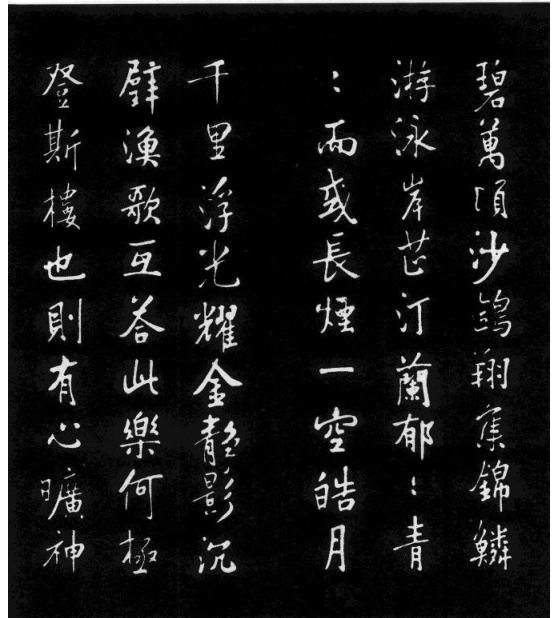 碧萬頃沙鷗翔集錦鱗
游泳岸芷汀蘭郁〻青
〻而或長煙一空皓月
千里浮光耀金靜影沉
璧漁歌互荅此樂何極
登斯樓也則有心曠神